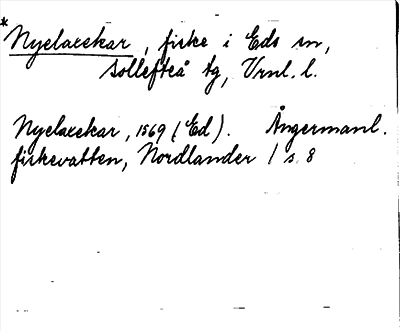 * Nyelaxekar, fiske i Eds sn,
Sollefteå tg, Vrnl. l.
Nyelaxekar, 1569 (Ed). Ångermanl.
fiskevatten, Nordlander 1 s. 8